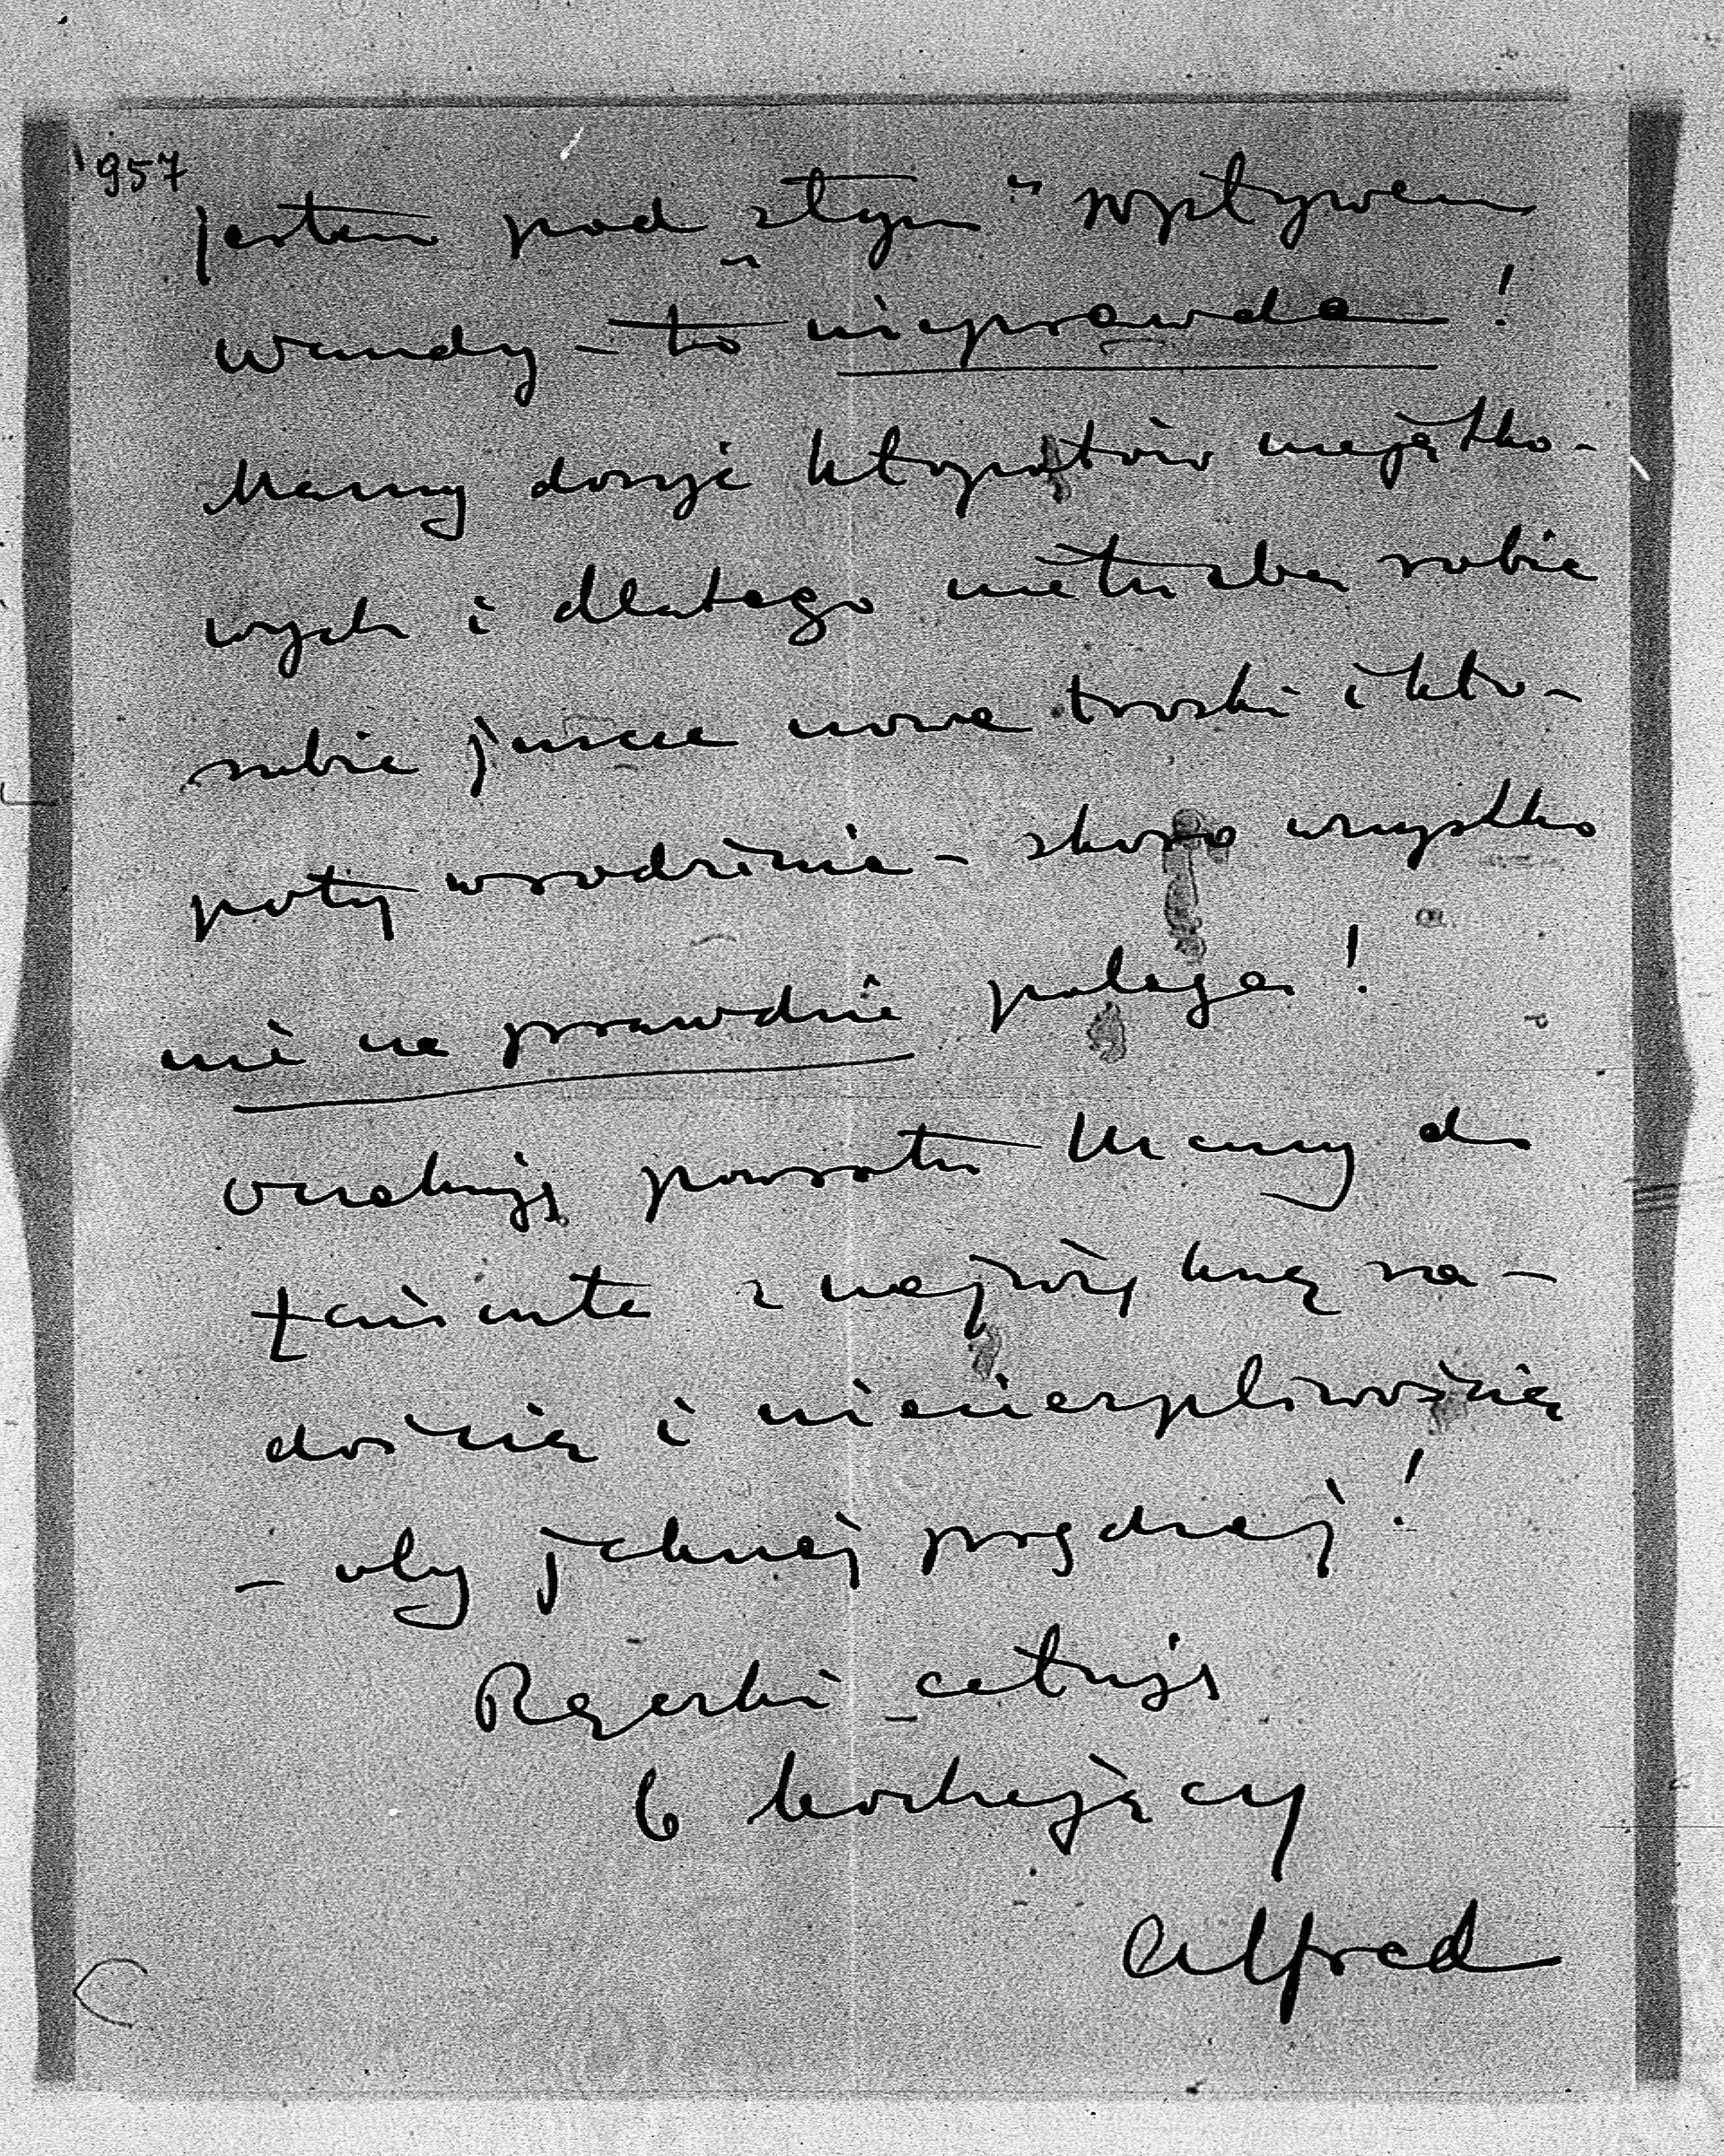 957
jestem pod „złym" wpływem
Wandy – to nieprawda!
Mamy dosyć kłopotów majątko-
wych i dlatego nie trzeba robić
sobie jeszcze nowe troski i kło-
poty w rodzinie – skoro wszystko
nie na prawdzie polega!
Oczekuję powrotu Mamy do
Łańcuta z największą ra-
dością i niecierpliwością
– oby jaknajprędzej!
Rączki całuję
b kochający
Alfred